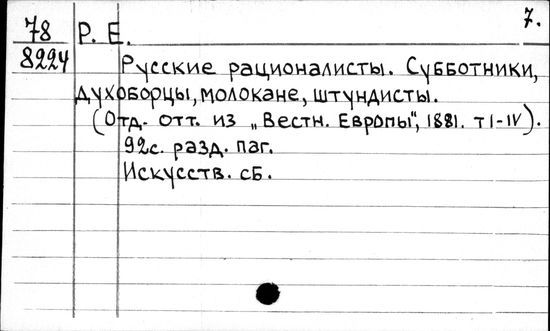 7.
78 Р. Е.
8224 Русские рационалисты. Субботники,
духоборцы, молокане, штундисты.
(Отд. отт. из „Вестн. Европы", 1881. т I-IV).
92с. разд. паг.
Искусств. сб.